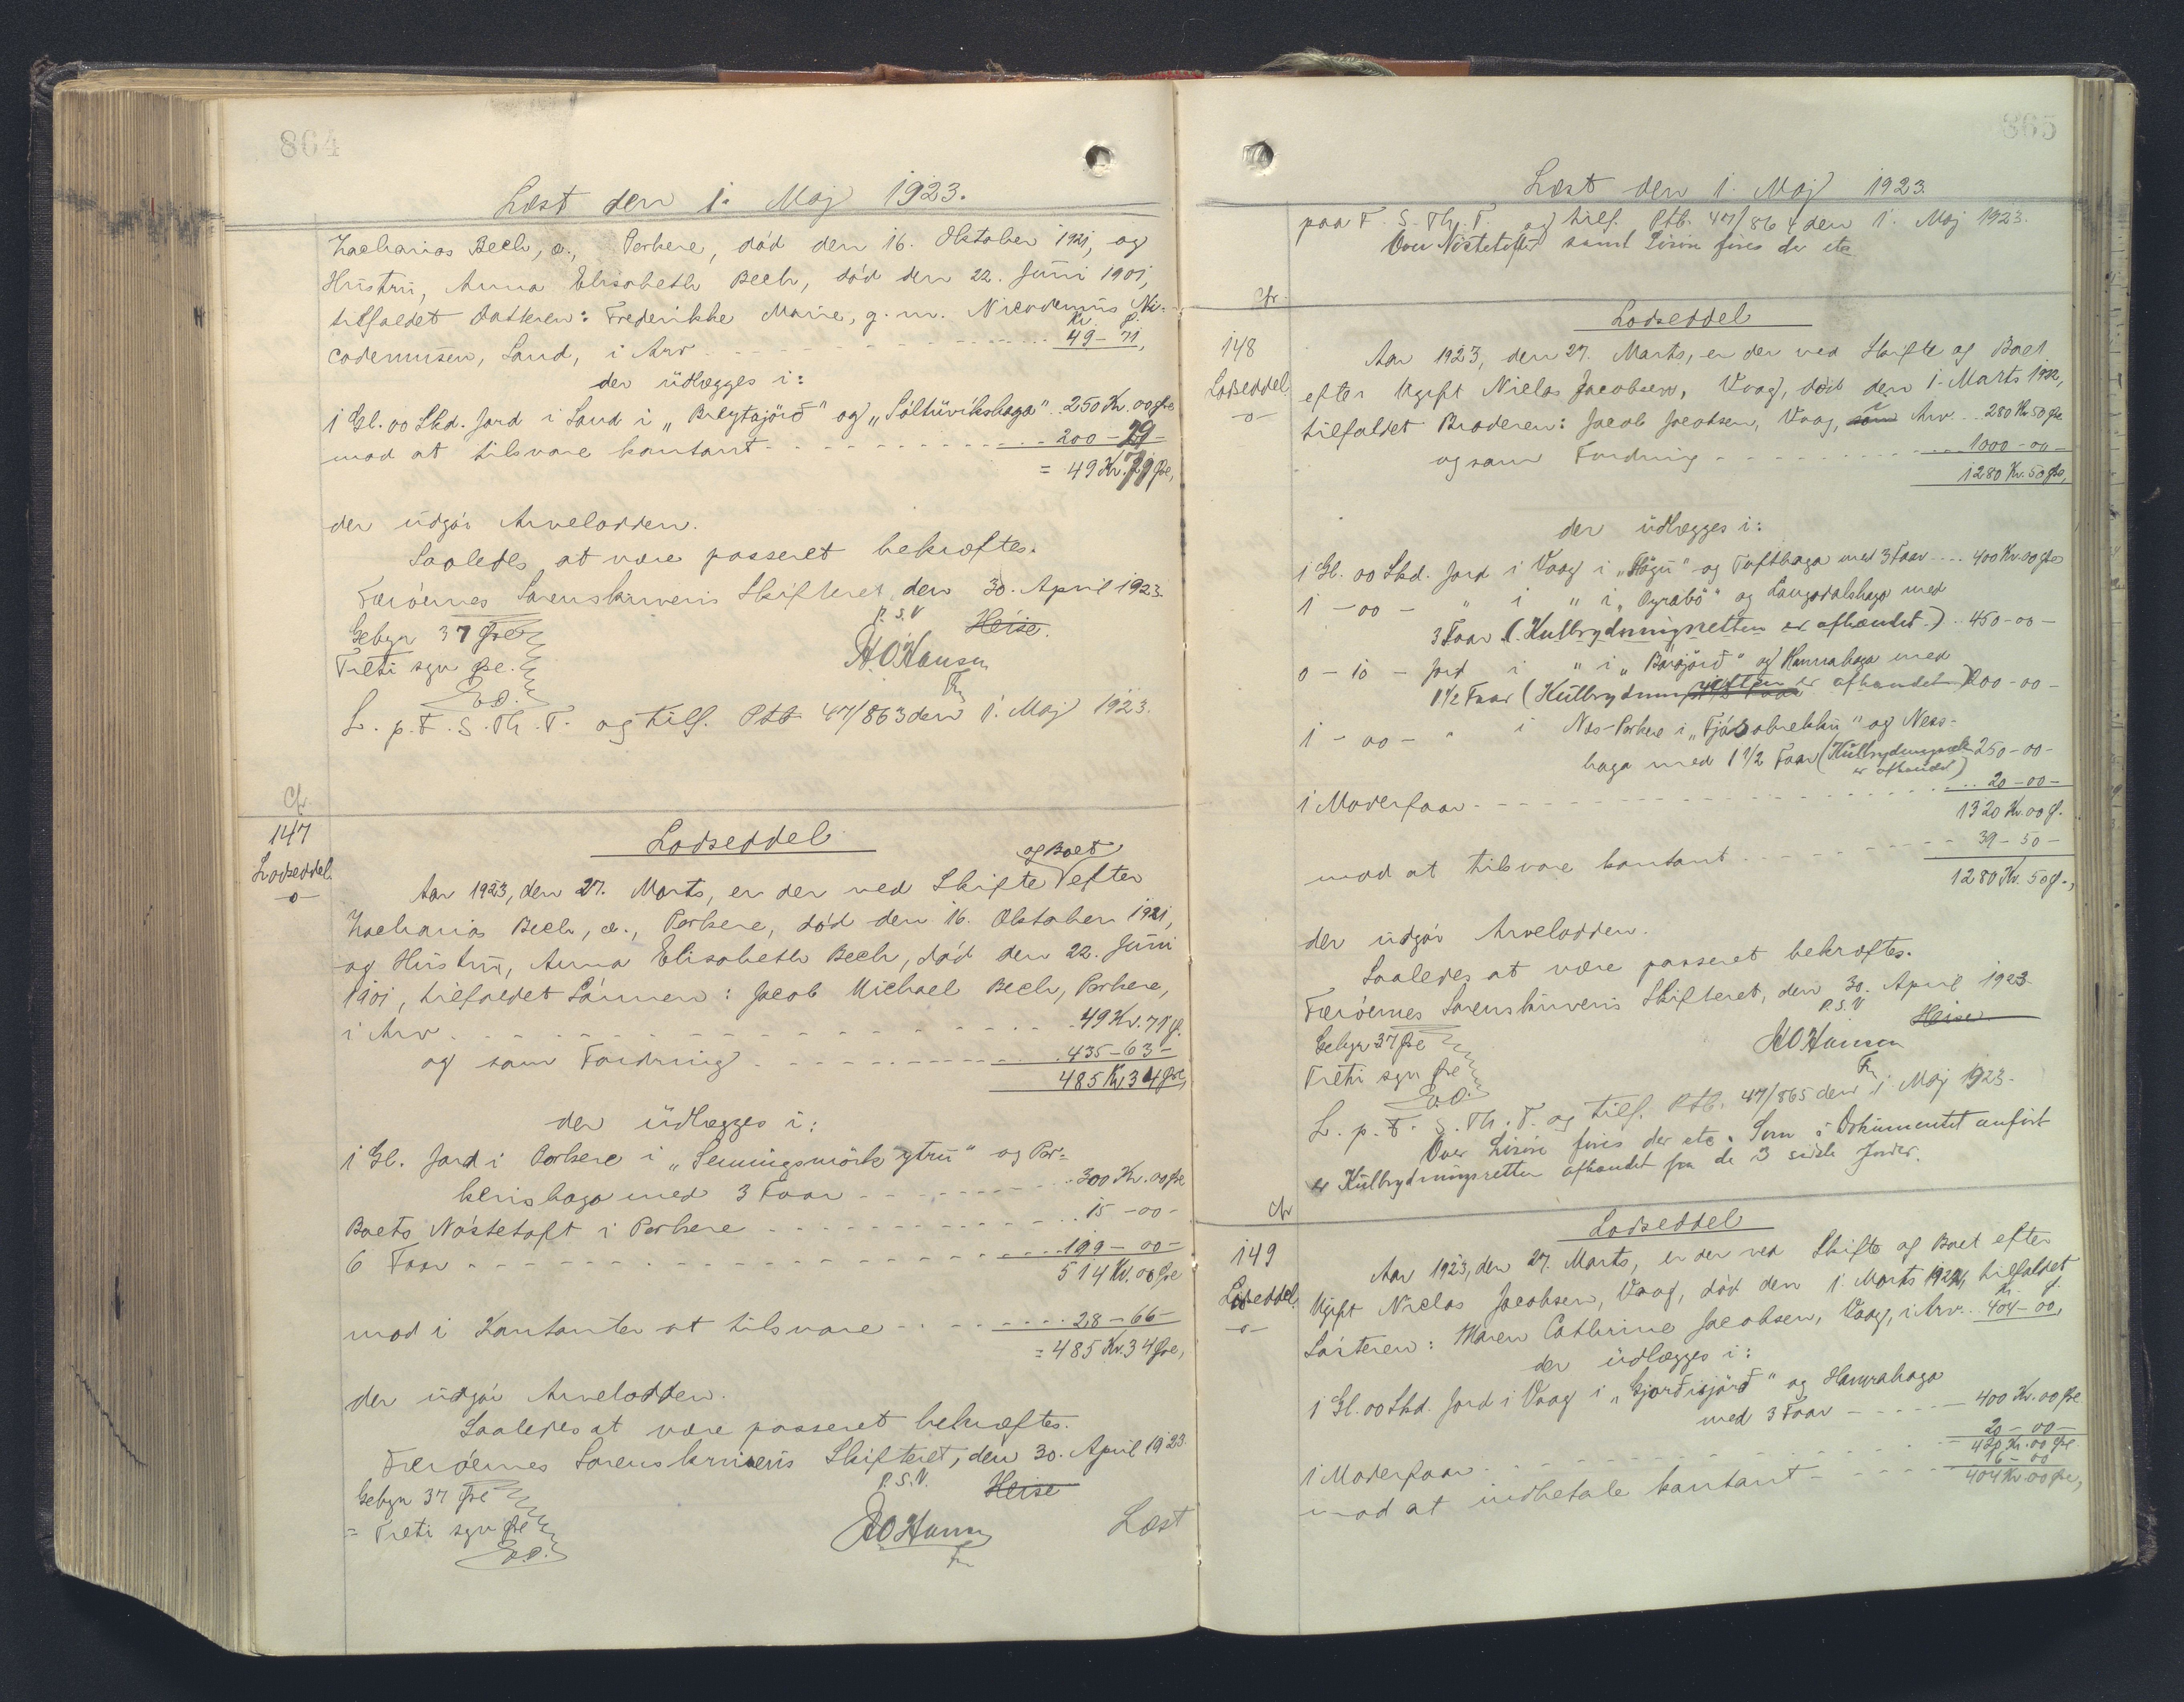 864
Læst den 1. Maj 1923.
Zacharias Bech, æ., Porkere, död den 16. Oktober 1921, og
Hustrü, Anna Elisabeth Bech, död den 22. Jüni 1901,
tilfaldet Datteren: Frederikke Marie, g. m. Nicodemüs Ni-
Kr. Ø.
codemüsen, Sand, i Arv 49-71,
der üdlægges i:
1 Gl. 00 Skd. Jord i Sand i „Breytajörð" og „Söltüvikshaga" 250 Kr. 00 Øre
mod at tilsvare kontant 200-29-
= 49 Kr. 71 Øre,
der üdgör Arvelodden.
Saaledes at være passeret bekræftes.
Færöernes Sorenskriveris Skifteret, den 30. April 1923.
P.S.V.
Gebyr 37 Øre Heise.
Treti syv Øre. H O Hansen
Fm
L. p. F. S. Th. T. og tilf. Ptb 47/863 den 1. Maj 1923.
Cfr.
147
Lodseddel
-o-
Lodseddel
og Boet
Aar 1923, den 27. Marts, er der ved Skifte efter
Zacharias Bech, æ., Porkere, död den 16. Oktober 1921,
og Hüstrü, Anna Elisabeth Bech, död den 22. Jüni
1901, tilfaldet Sönnen: Jacob Michael Bech, Porkere,
i Arv 49 Kr. 71 Ø.
og som Fordring 435-63-
485 Kr 34 Øre,
der üdlægges i:
1 Gl. Jord i Porkere i „Senningsmörk ytrü" og Por=
kerishaga med 3 Faar 300 Kr. 00 Øre
Boets Nöstetoft i Porkere 15-00-
6 Faar 199-00-
514 Kr. 00 Øre
mod i Kontanter at tilsvare 28-66-
= 485 Kr. 34 Øre,
der üdgör Arvelodden.
Saaledes at være passeret bekræftes.
Færöernes Sorenskriveris Skifteret, den 30. April 1923.
P.S.V.
Gebyr 37 Øre Heise
= Treti syv Øre H O Hansen Læst
Fm
865
Læst den 1. Maj 1923.
paa F. S. Th. T. og tilf. Ptb. 47/864 den 1. Maj 1923.
Over Nöstetoften samt Lösöre fines der ete
Cfr.
148
Lodseddel
-o-
Lodseddel
Aar 1923, den 27. Marts, er der ved Skifte af Boet
efter Ugift Niclas Jacobsen, Vaag, död den 1. Marts 1922,
tilfaldet Broderen: Jacob Jacobsen, Vaag, i Arv 280 Kr 50 Øre
og som Fordring 1000-00-
1280 Kr. 50 Øre,
der üdlægges i:
1 Gl. 00 Skd. Jord i Vaag i „Högü" og Tofthaga med 3 Faar 400 Kr. 00 Øre
1-00- " i " i „Oyrabö" og Langodalshaga med
3 Faar (Kulbrydningsretten er afhændet.) 450-00-
0-10- Jord i " i „Borgjörð" og Hamrahaga med
1 1/2 Faar (Külbrydningsretten er afhændet) 200-00-
1-00- " i Næs-Porkere i „Fjósabrekkü" og Ness-
haga med 1 1/2 Faar (Külbrydningsret 250-00-
er afhændet)
1 Moderfaar 20-00-
1320 Kr. 00 Ø.
mod at tilsvare kontant 39-50-
1280 Kr. 50 Ø.,
der üdgör Arvelodden.
Saaledes at være passeret bekræftes.
Færöernes Sorenskriveris Skifteret, den 30. April 1923
P.S.V.
Gebyr 37 Øre Heise
Treti syv Øre H O Hansen
Fm
L. p. F. S. Th. T. og tilf. Ptb. 47/865 den 1. Maj 1923.
Over Lösöre fines der ete. Som i Dokumentet anfört
er Külbrydningsretten afhændet fra de 3 sidste Jorder.
Cfr
149
Lodseddel
-o-
Lodseddel
Aar 1923, den 27. Marts, er der ved Skifte af Boet efter
Ugift Niclas Jacobsen, Vaag, död den 1. Marts 1922, tilfaldet
Kr. Ø.
Sösteren: Maren Cathrine Jacobsen, Vaag, i Arv 404-00,
der üdlægges i:
1 Gl. 00 Skd. Jord i Vaag i „Gjordisjörð" og Hamrahaga
med 3 Faar 400 Kr. 00 Øre
1 Moderfaar 20-00-
420 Kr. 00 Øre
mod at indbetale kontant 16-00
404 Kr 00 Øre,